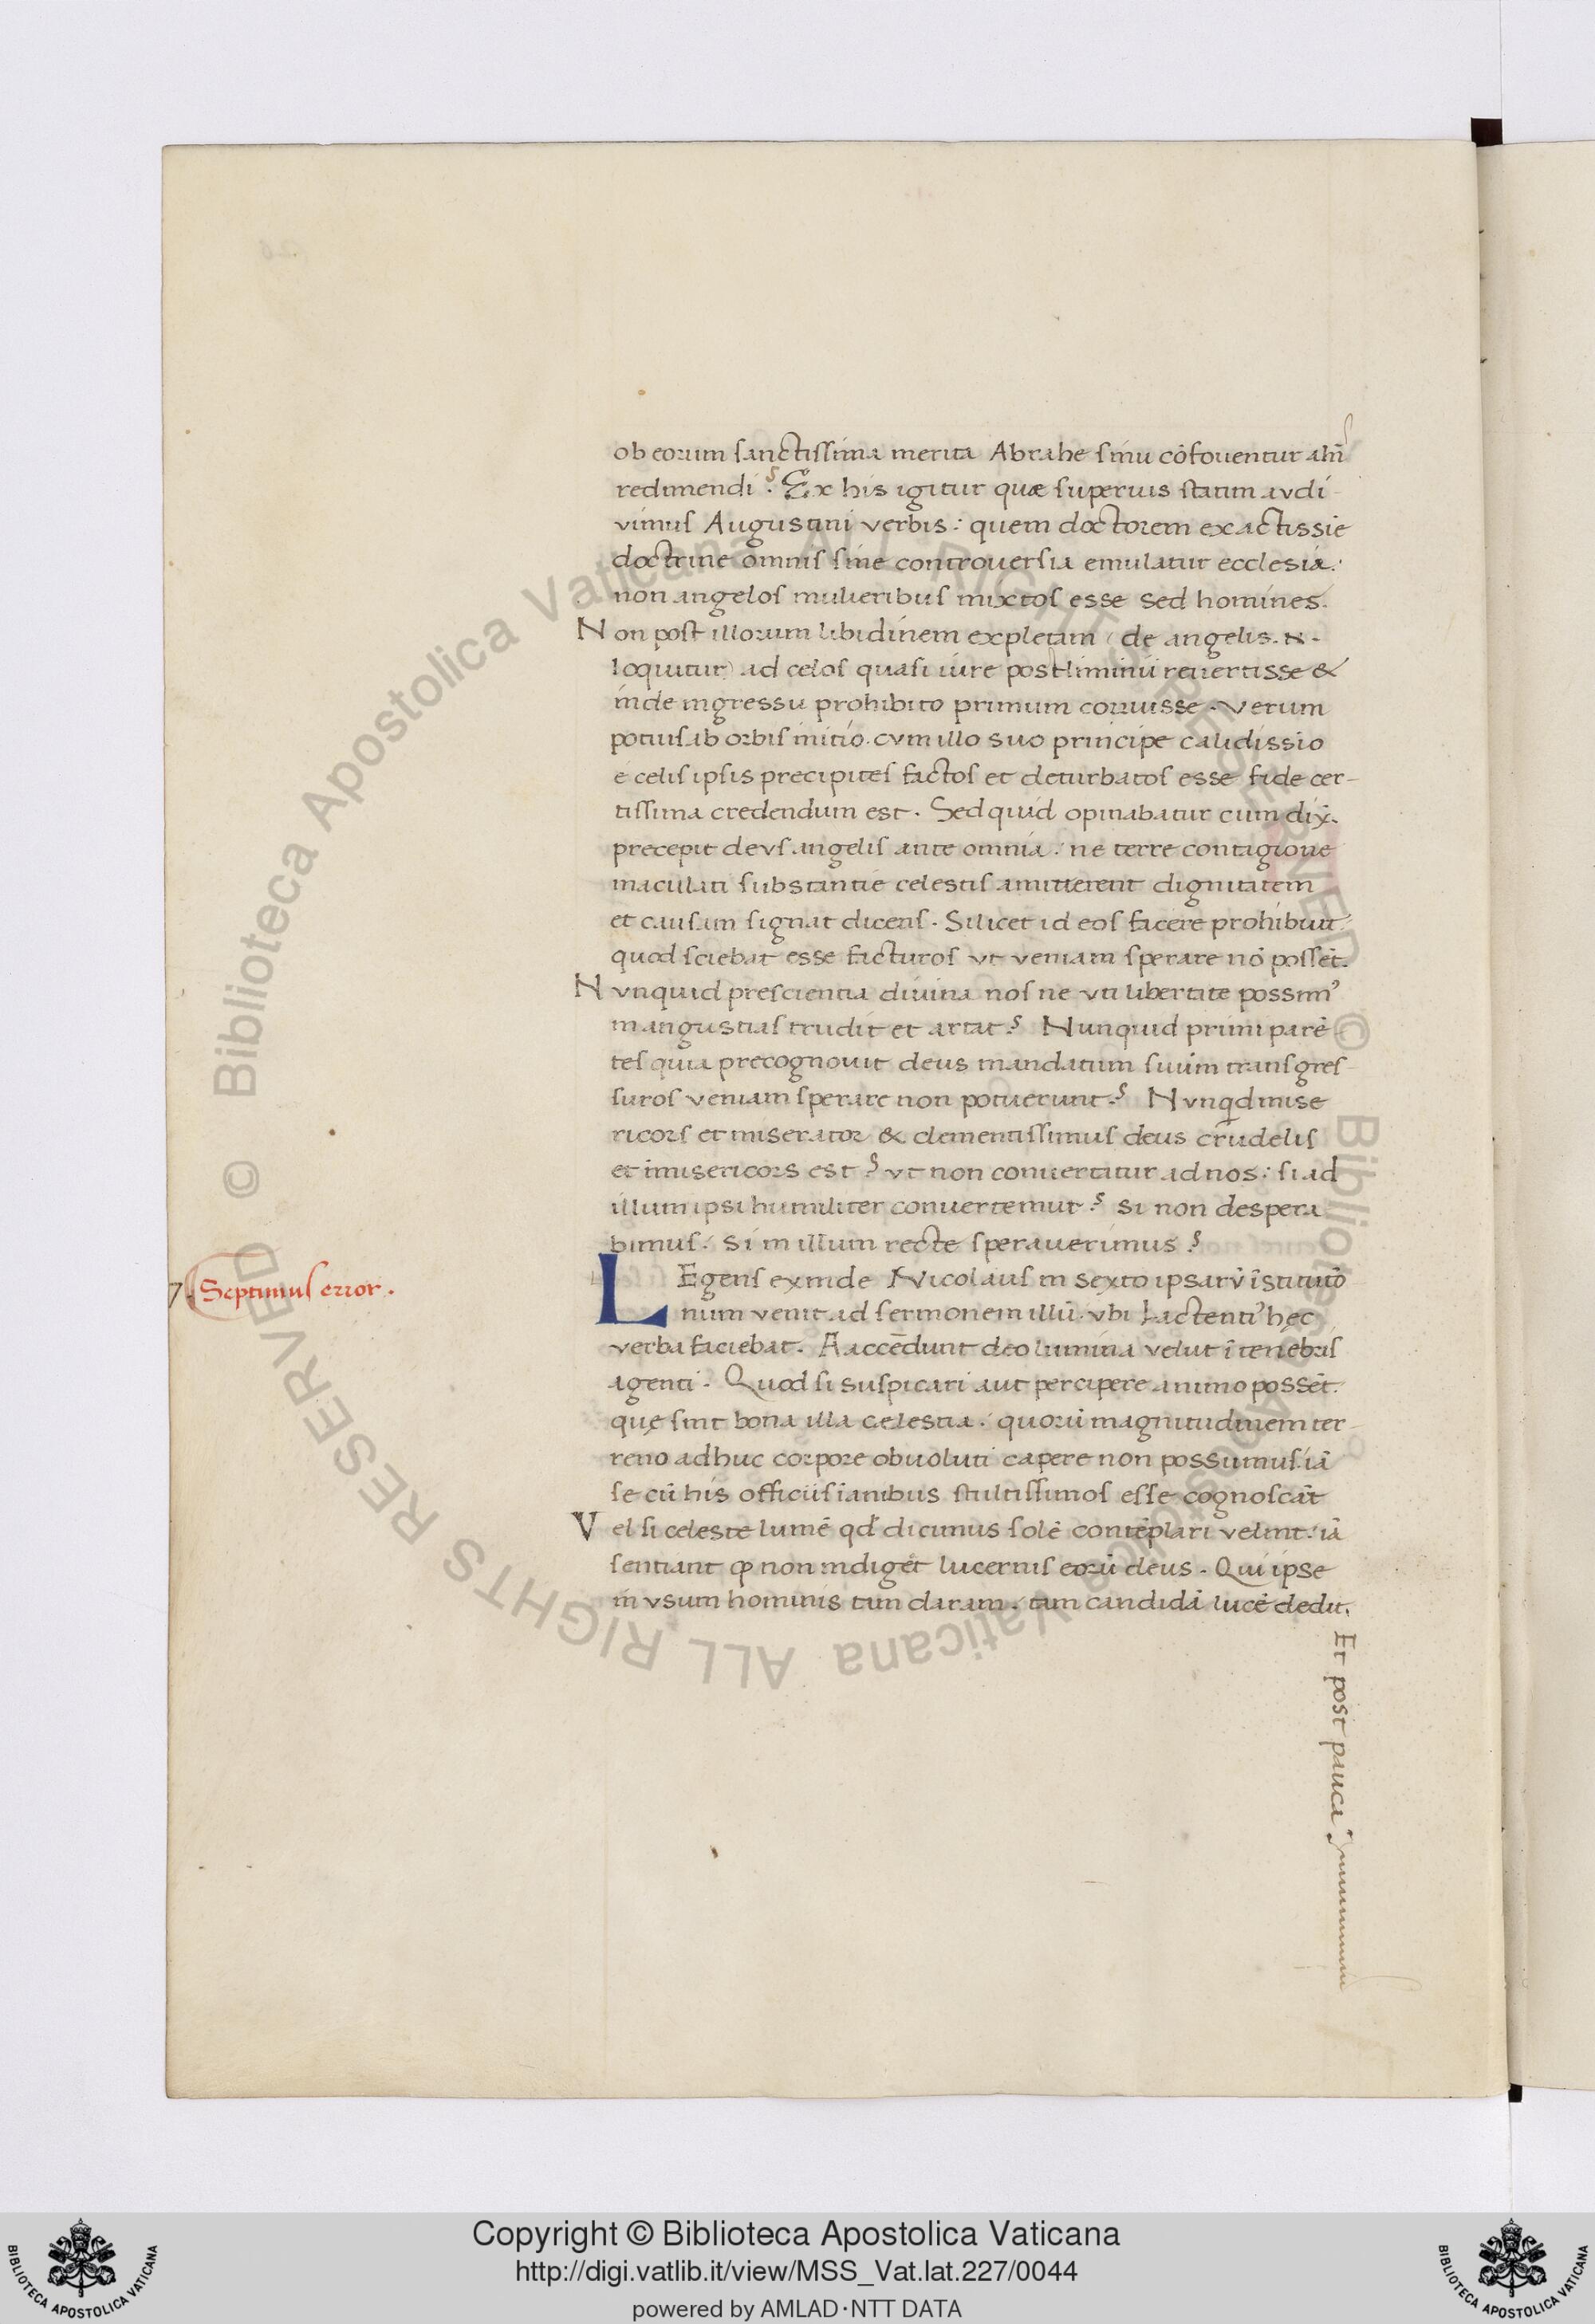 ob eorum sanctissima merita Abrahe sinu cōfoventur
redimendi? Ex his igitur quæ superius statim audi
vimus Augustini verbis: quem doctorem exactissie
doctrine omnis sine controversia emulatur ecclesia:
non angelos mulieribus mixtos esse sed homines.
Non post illorum libidinem expletam (de angelis .n.
loquitur) ad celos quasi iure postliminii revertisse &
inde ingressu prohibito primum corruisse. Verum
potius ab orbis initio. cum illo suo principe calidissio
e celis ipsis precipites factos et deturbatos esse fide cer-
tissima credendum est. Sed quid opinabatur cum dix̄.
precepit deus angelis ante omnia: ne terre contagione
maculati substantie celestis amitterent dignitatem
et causam signat dicens. Silicet id eos facere prohibuit:
quod sciebat esse facturos ut veniam sperare nō possēt.
Nunquid prescientia divina nos ne uti libertate possim9
in angustias trudit et artat? Nunquid primi parē-
tes quia precognovit deus mandatum suum transgres-
suros veniam sperare non potuerunt? Nunqd mise
ricors et miserator & clementissimus deus crudelis
et īmisericors est? ut non convertatur ad nos: si ad
illum ipsi humiliter convertemur? si non despera
bimus. Si in illum recte speraverimus?
7. Septimus error.
LEgens exinde Nicolaus in sexto ipsarū īstitutō
num venit ad sermonem illū. ubi Lactenti9 hęc
verba faciebat. Aaccēdunt deo lumina velut ī tenebris
agenti. Quod si suspicari aut percipere animo possēt.
quę sint bona illa celestia: quorū magnitudinem ter-
reno adhuc corpore obvoluti capere non possumus. iā
se cū his officiis ianibus stultissimos esse cognoscāt
Vel si celeste lumē qd dicimus solē contēplari velint. iā
sentiant ꝙ non indigēt lucernis eorū deus. Qui ipse
in usum hominis tam claram. tam candidā lucē dedit.
Et post pauca
Copyright © Biblioteca Apostolica Vaticana
http://digi.vatlib.it/view/MSS_Vat.lat.227/0044
powered by AMLAD·NTT DATA
BIBLIOTECA APOSTOLICA VATICANA
BIBLIOTECA APOSTOLICA VATICANA